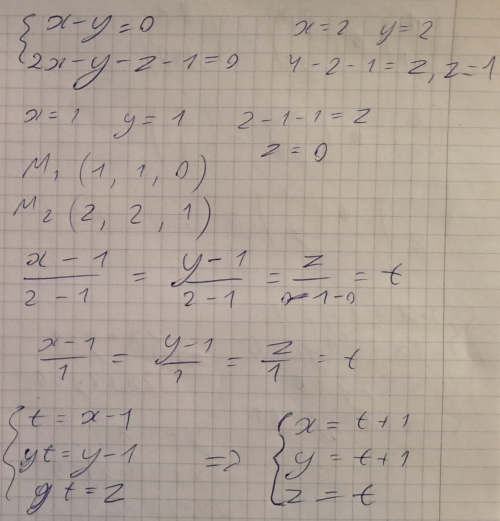 x-y=0    x=2  y=2
2x-y-z-1=0    4-2-1=z, z=1
x=1    y=1    2-1-1=z
z=0
M₁ (1, 1, 0)
M₂ (2, 2, 1)
(x-1)/(2-1) = (y-1)/(2-1) = z/(1-0) = t
(x-1)/1 = (y-1)/1 = z/1 = t
t=x-1    x=t+1
t=y-1 => y=t+1
t=z    z=t